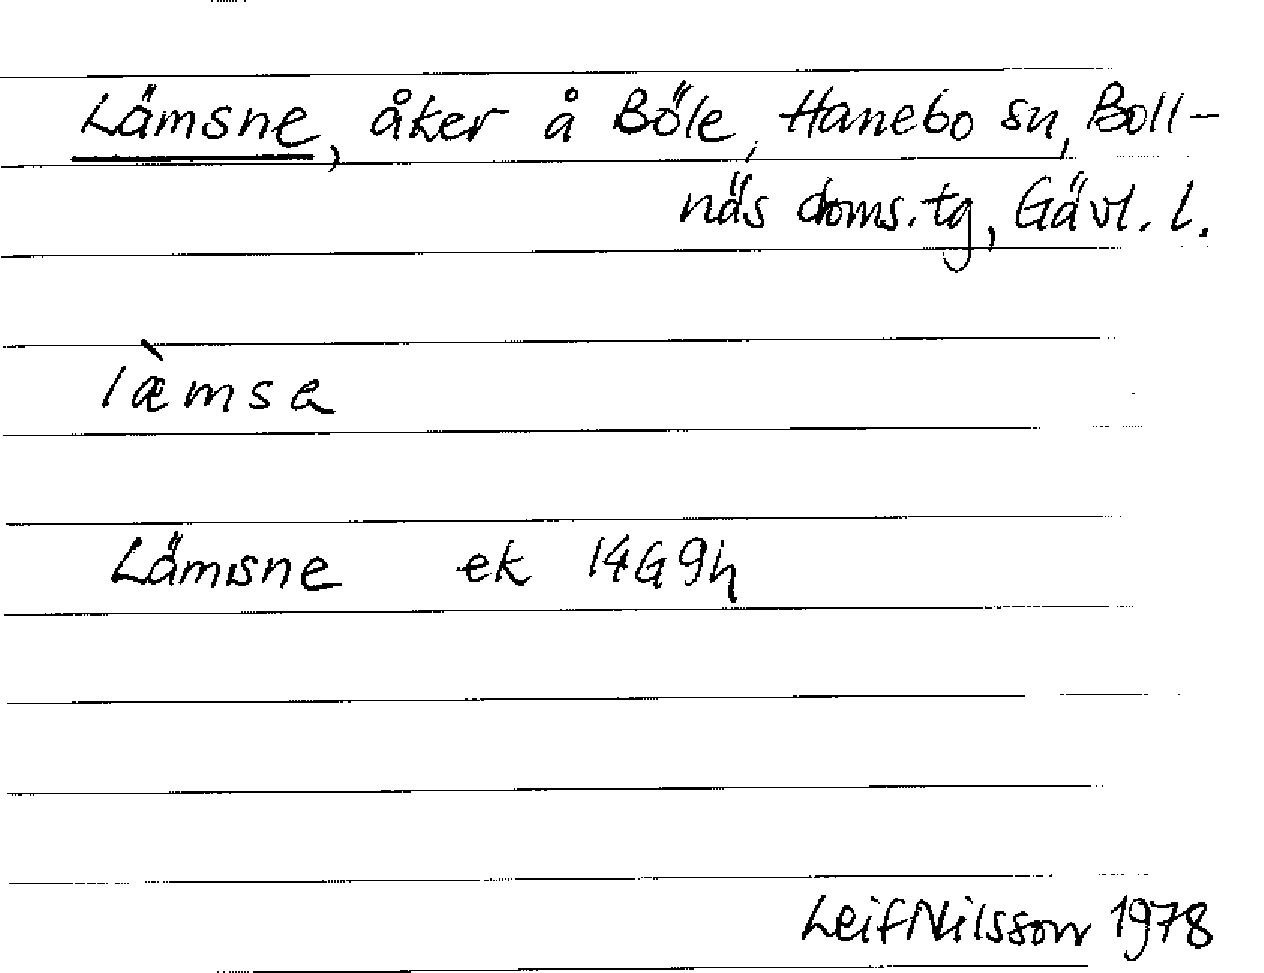 Lämsne, åker å Böle, Hanebo sn, Boll-
näs doms.tg, Gävl. l.
læ̀msa
Lämsne ek 14G9h
Leif Nilsson 1978